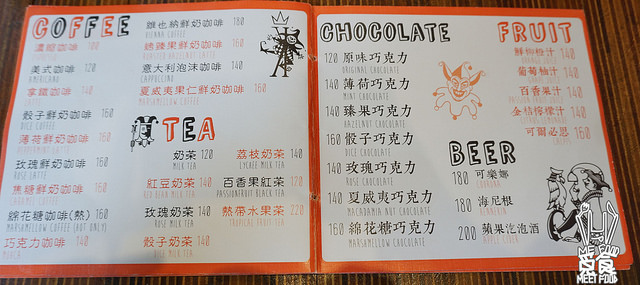 COFFEE
濃縮咖啡 100
美式咖啡 120
AMERICANO
拿鐵咖啡 140
骰子鮮奶咖啡 160
DICE COFFEE
薄荷鮮奶咖啡 160
玫瑰鮮奶咖啡 160
ROSE LATTE
焦糖鮮奶咖啡 160
CARAMEL COFFEE
綿花糖咖啡(熱) 160
MARSHMELLOW COFFEE (HOT ONLY)
巧克力咖啡 140
MOCHA
維也納鮮奶咖啡 180
VIENNA COFFEE
榛果鮮奶咖啡 160
HAZELNUT LATTE
義大利泡沫咖啡 140
CAPPUCCINO
夏威夷果仁鮮奶咖啡 160
TEA
奶茶 120
MILK TEA
荔枝奶茶 140
LYCHEE MILK TEA
紅豆奶茶 140
RED BEAN MILK TEA
百香果紅茶 120
PASSIONFRUIT BLACK TEA
玫瑰奶茶 140
ROSE MILK TEA
熱帶水果茶 220
TROPICAL FRUIT TEA
骰子奶茶 140
CHOCOLATE
120 原味巧克力
ORIGINAL CHOCOLATE
140 薄荷巧克力
MINT CHOCOLATE
140 臻果巧克力
HAZELNUT CHOCOLATE
160 骰子巧克力
DICE CHOCOLATE
140 玫瑰巧克力
ROSE CHOCOLATE
140 夏威夷巧克力
MACADAMIA NUT CHOCOLATE
160 綿花糖巧克力
MARSHMELLOW CHOCOLATE
FRUIT
鮮柳橙汁 140
葡萄柚汁 140
百香果汁 140
金桔檸檬汁 140
可爾必思 160
BEER
180 可樂娜
CORONA
180 海尼根
HEINEKEN
200 蘋果沱泡酒
ME FOOD
覓食
MEET FOOD